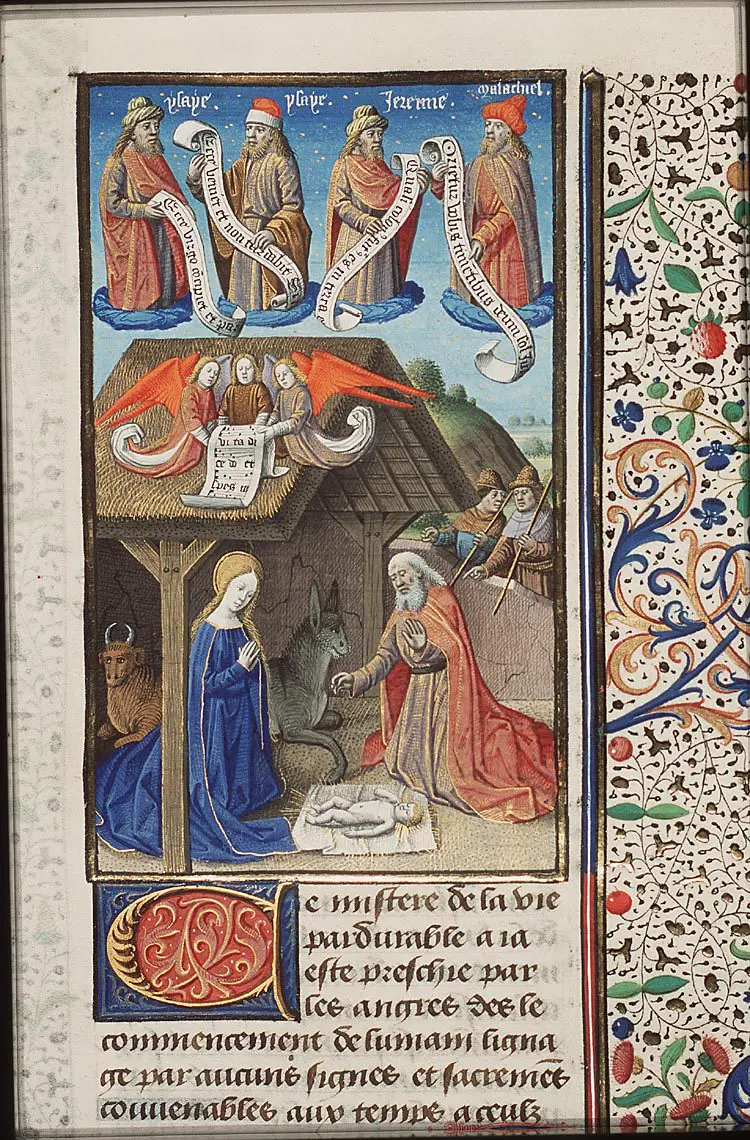 ysaye. ysaye. Jeremie. malachiel.
Ecce virgo concipiet et pa
Ecce veniet et non tardabit
Quasi colonus es in terra
Orietur vobis timentibus nomen
in ta di
ce di et
pes in
Ce mistere de la vie
pardurable a ia
este preschie par
les angres des le
commencement de lumain ligna
ge par aucuns signes et sacremēs
couuenables aux temps a ceulz